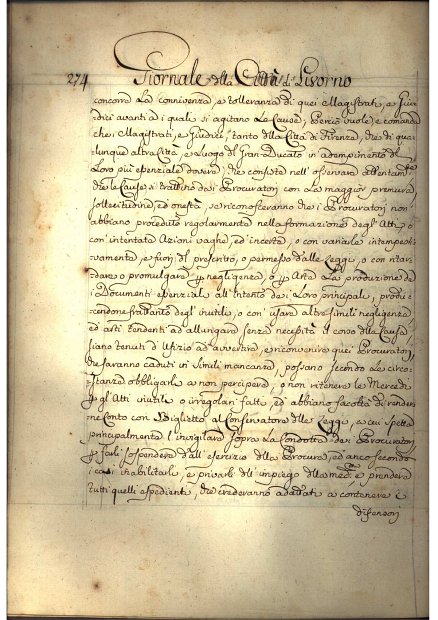 274 Giornale della Città di Livorno
concorra La connivenza, e tolleranza di quei Magistrati, e Giu-
dici avanti a i quali si agitano Le Cause; Perciò vuole, e comanda
che i Magistrati, e Giudici, tanto della Città di Firenze, che di qua-
lunque altra Città, e Luogo del Gran-Ducato in adempimento del
Loro più essenziale dovere, che consiste nell' osservare attentam.te
che le Cause si trattino da i Procuratori con La maggior premura,
sollecitudine, ed onestà, se riconosceranno che i Procuratori non
abbiano proceduto regolarmente nella formazione degl' Atti, o
con' intentate Azioni vaghe, ed incerte, o con variarle intempesti-
vamente, e fuori del prescritto, o permesso dalle Leggi, o con ritar-
dare o promulgare p negligenza, o p Arte La produzione de
i Documenti essenziali all' Intento de i Loro principali, produ-
cendone frattanto degl' inutili, o con' usare altre simili negligenze,
ed arti tendenti ad allungare senza necessità il corso della Causa,
siano tenuti d' Ufizio ad avvertire, e riconvenire quei Procuratori,
che saranno caduti in simili mancanze, possano secondo Le circo-
stanze obbligarli a non percipere, o non ritenere Le Mercedi
p gl' Atti inutili, o irregolari fatti, ed abbiano facoltà di render-
ne Conto con Biglietto al Conservatore delle Leggi, a cui spetta
principalmente l' invigilare sopra La Condotta de i Procuratori
p farli sospendere dall' esercizio della Procura, ed anco secondo
i casi inabilitarli, e privarli dell' impiego della med.a e prendere
tutti quelli espedienti, che crederanno adattati a contenere i
difensori